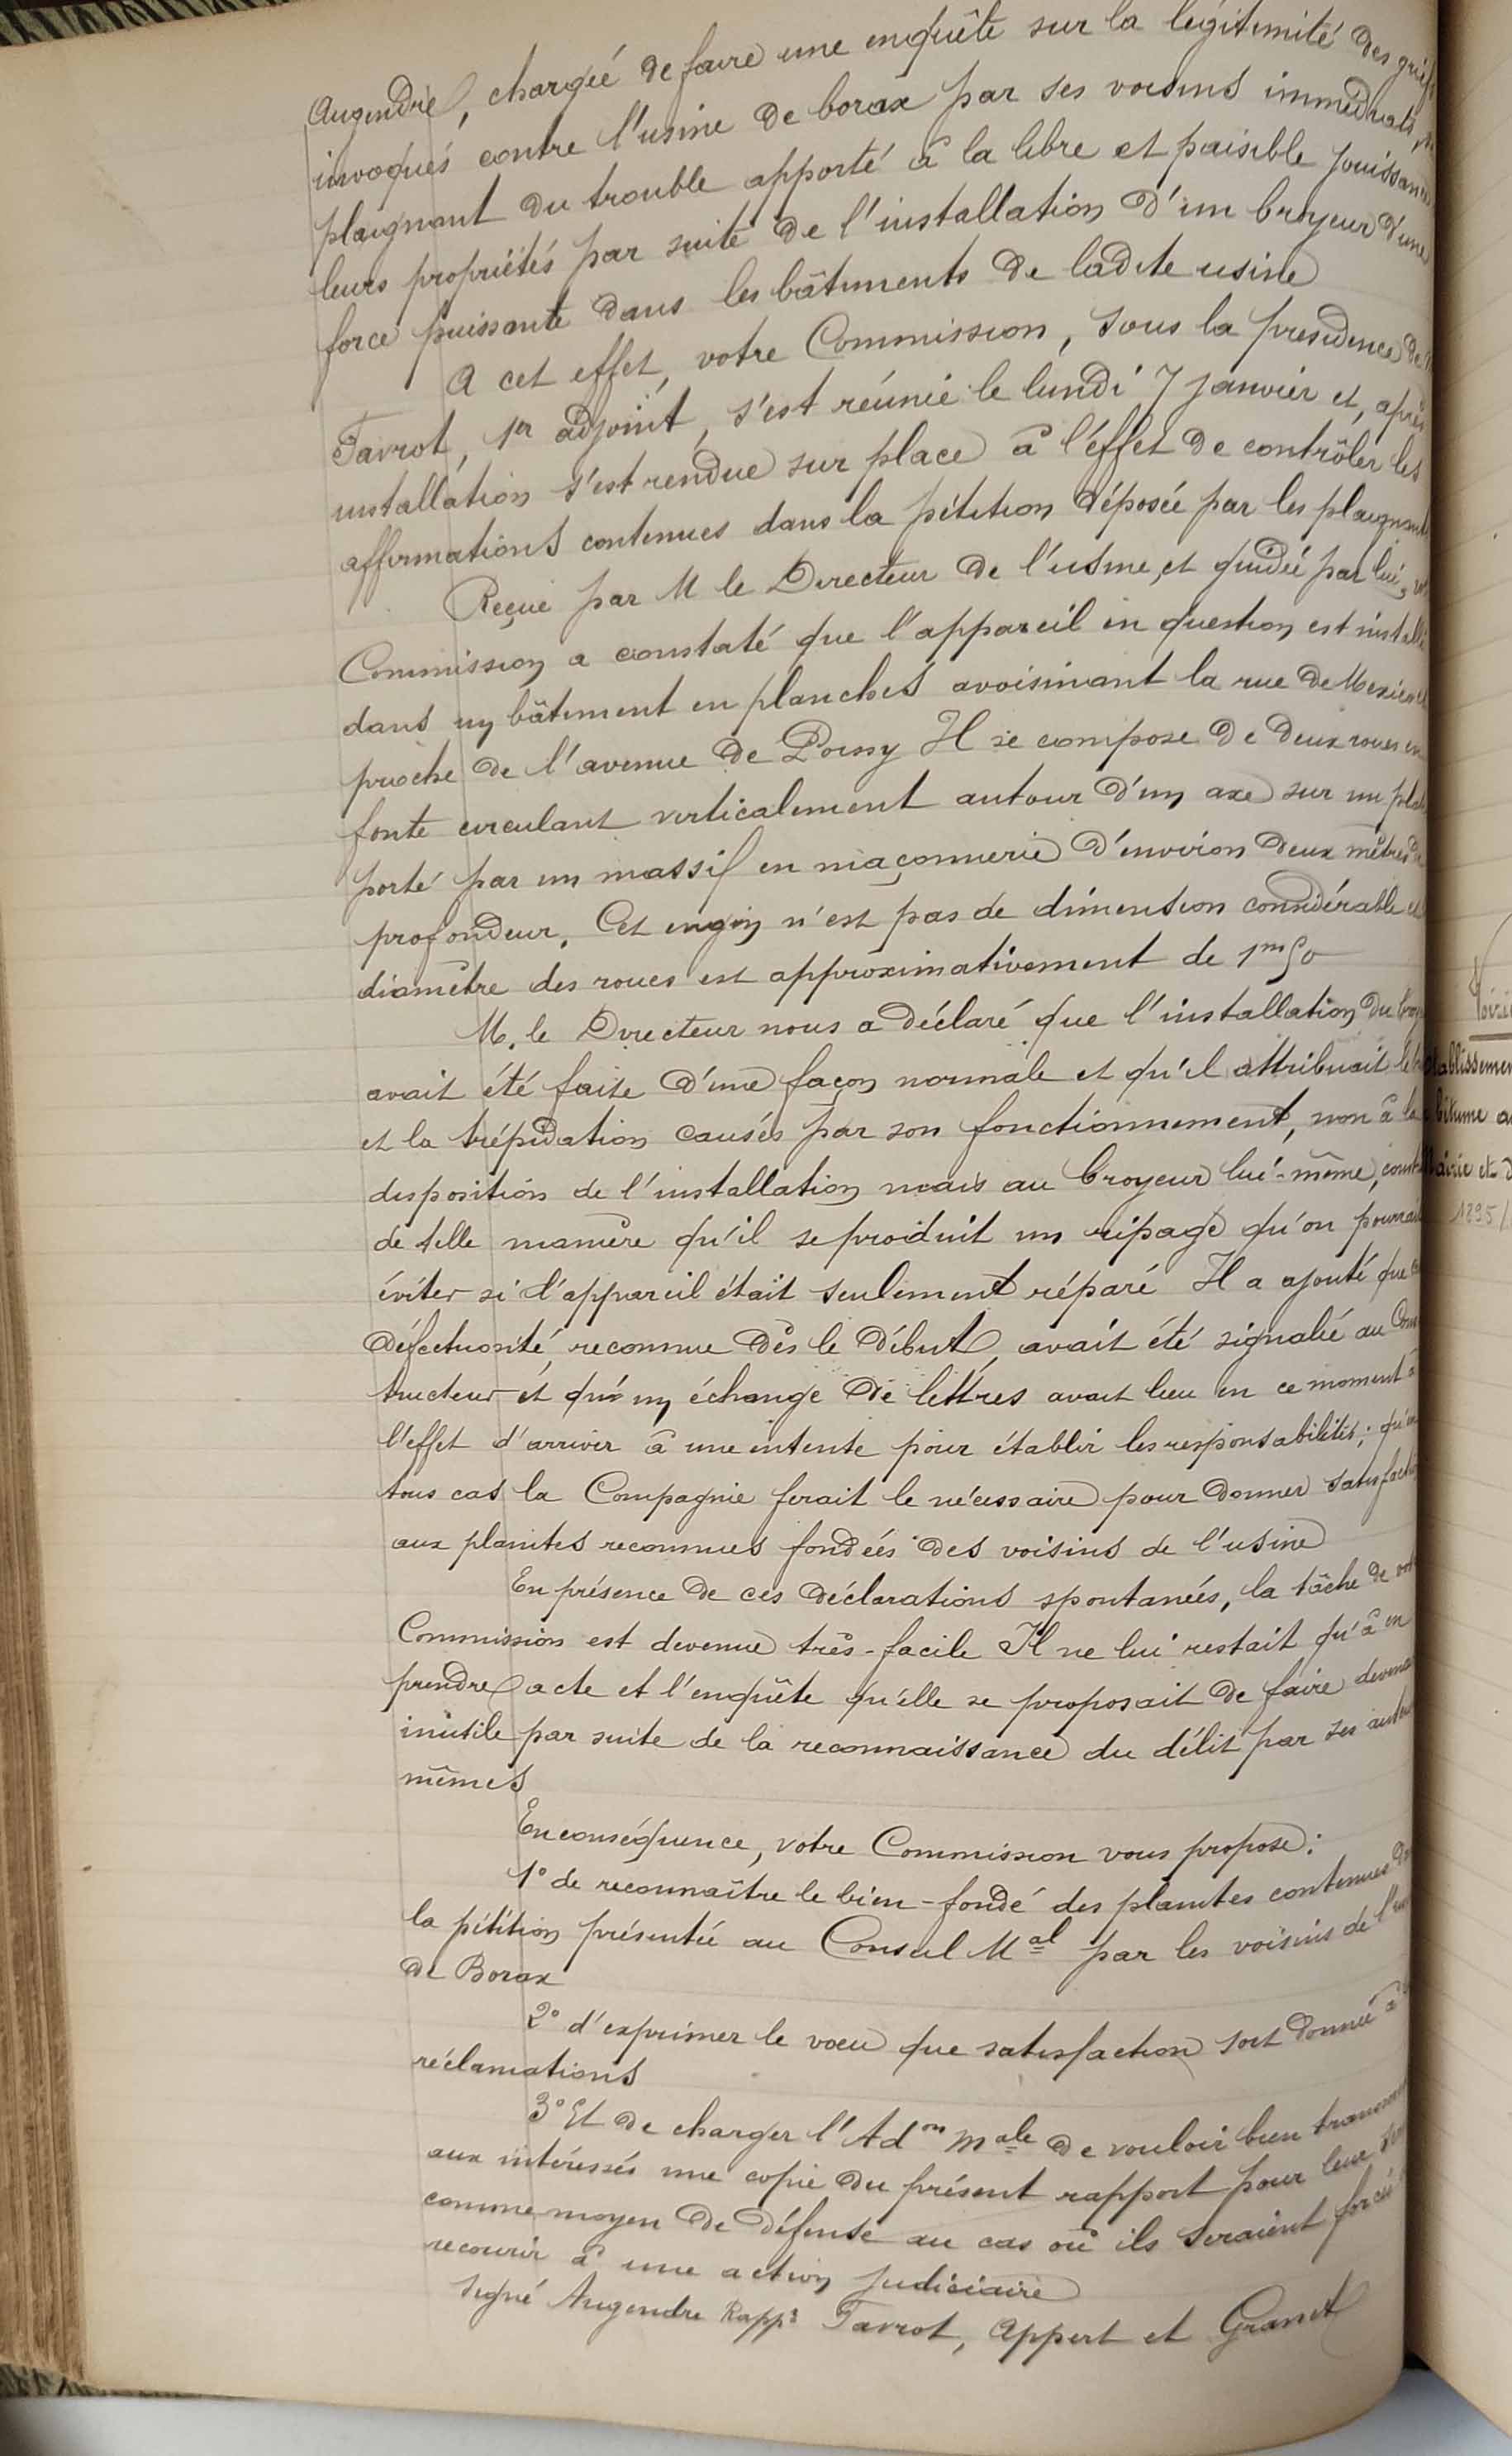 Augendre, chargée de faire une enquête sur la légitimité des griefs
invoqués contre l'usine de borax par ses voisins immédiats, se
plaignant du trouble apporté à la libre et paisible jouissance
leurs propriétés par suite de l'installation d'un broyeur d'une
force puissante dans les bâtiments de ladite usine
A cet effet, votre Commission, sous la présidence de
Favrot, 1er adjoint, s'est réunie le lundi 7 janvier et, après
installation s'est rendue sur place à l'effet de contrôler les
affirmations contenues dans la pétition déposée par les plaignants
Reçue par M le Directeur de l'usine, et guidée par lui,
Commission a constaté que l'appareil en question est installé
dans un bâtiment en planches avoisinant la rue de
proche de l'avenue de Poissy Il se compose de deux roues en
fonte circulant verticalement autour d'un axe sur un
porté par un massif en maçonnerie d'environ deux mètres de
profondeur. Cet engin n'est pas de dimension considérable
diamètre des roues est approximativement de 1m50
M. le Directeur nous a déclaré que l'installation du
avait été faite d'une façon normale et qu'il attribuait
et la trépidation causés par son fonctionnement, non à la
disposition de l'installation mais au broyeur lui-même,
de telle manière qu'il se produit un ripage qu'on pourrait
éviter si l'appareil était seulement réparé Il a ajouté que
défectuosité, reconnue dès le début, avait été signalée au Cons
tructeur et qu'un échange de lettres avait lieu en ce moment à
l'effet d'arriver à une entente pour établir les responsabilités; qu'en
tous cas la Compagnie ferait le nécessaire pour donner satisfaction
aux plaintes reconnues fondées des voisins de l'usine
En présence de ces déclarations spontanées, la tâche de
Commission est devenue très-facile Il ne lui restait qu'à en
prendre acte et l'enquête qu'elle se proposait de faire
inutile par suite de la reconnaissance du délit par ses
mêmes
En conséquence, votre Commission vous propose:
1° de reconnaître le bien-fondé des plaintes contenues
la pétition présentée au Conseil Mal par les voisins de
de Borax
2° d'exprimer le vœu que satisfaction soit donnée à
réclamations
3° Et de charger l'Adon Male de vouloir bien
aux intéressés une copie du présent rapport pour leur
comme moyen de défense au cas où ils seraient
recourir à une action judiciaire
Signé Augendre Rappr Favrot, Appert et Granet
bitume
1895